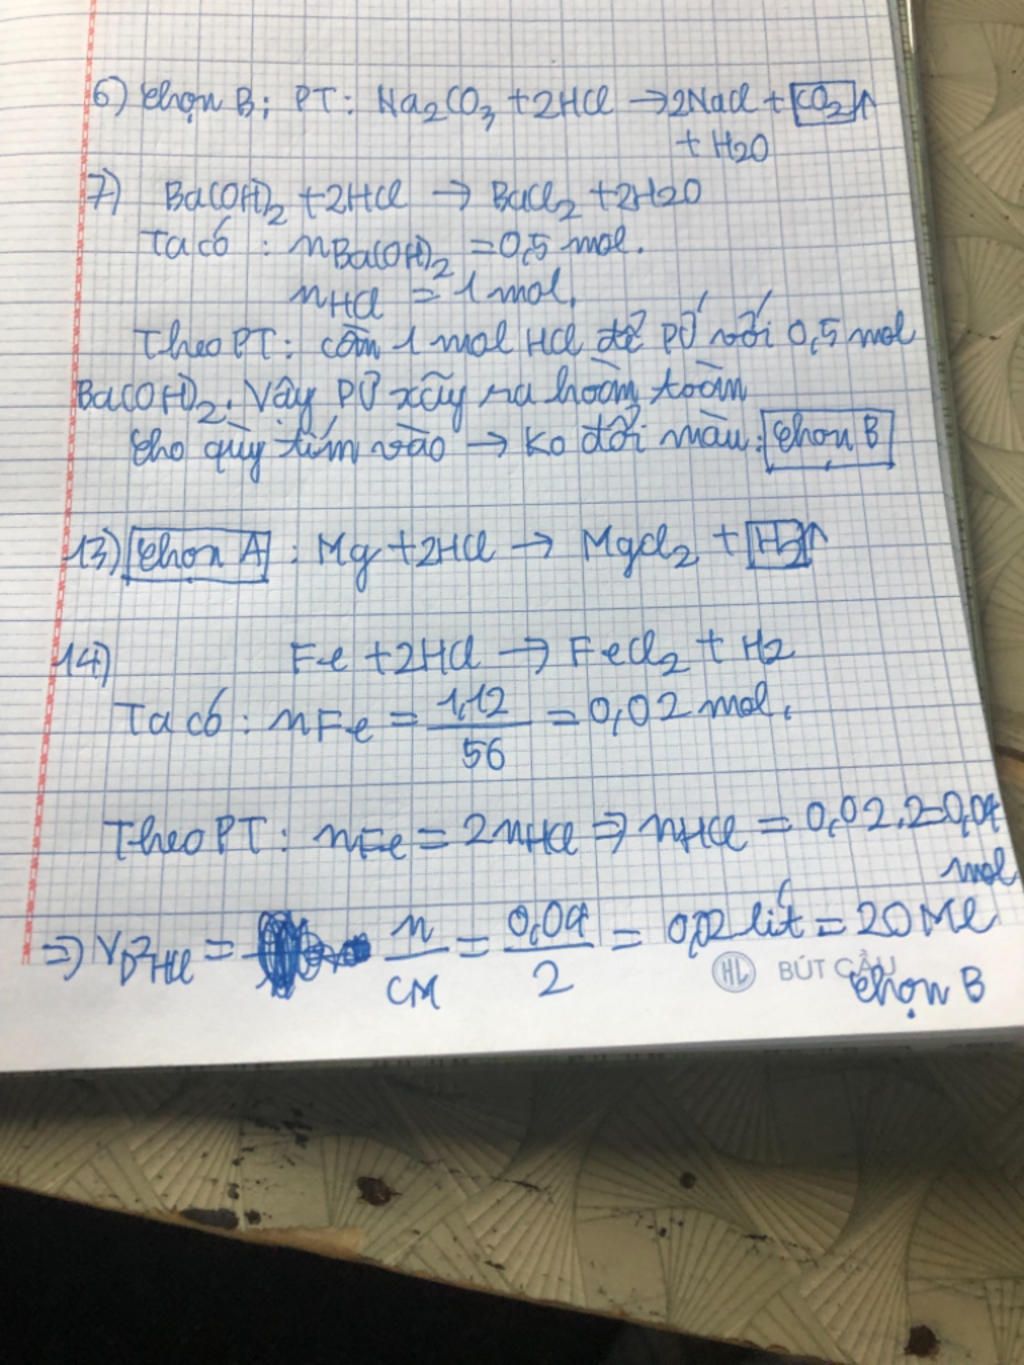 6) Chọn B; PT: Na2CO3 + 2HCl → 2NaCl + CO2↑
+ H2O
7) Ba(OH)2 + 2HCl → BaCl2 + 2H2O
Ta có: nBa(OH)2 = 0,5 mol.
nHCl = 1 mol.
Theo PT: cần 1 mol HCl để PƯ với 0,5 mol
Ba(OH)2. Vậy PƯ xãy ra hoàn toàn
Cho quỳ tím vào → Ko đổi màu. Chọn B
13) Chọn A : Mg + 2HCl → MgCl2 + H2↑
14) Fe + 2HCl → FeCl2 + H2
Ta có: nFe = 1,12/56 = 0,02 mol.
Theo PT: nFe = 2nHCl ⇒ nHCl = 0,02.2=0,04
mol
⇒ VD2HCl = n/CM = 0,04/2 = 0,02 lít = 20 Ml
HL BÚT CẦU
Chọn B